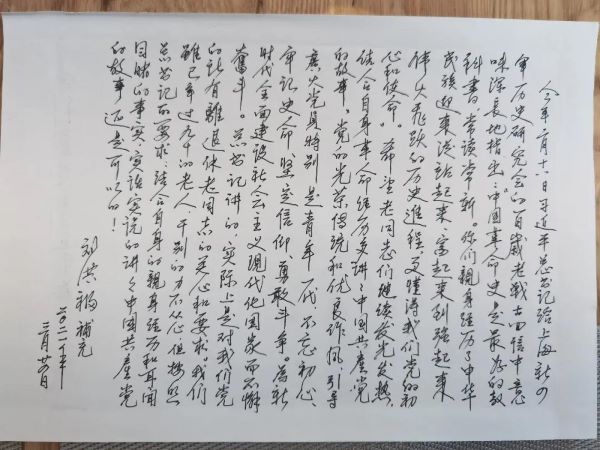 今年二月十八日习近平总书记给上海新四
军历史研究会的百岁老战士回信中意
味深长地指出：中国革命史是最好的教
科书，常读常新。你们亲身经历了中华
民族迎来从站起来、富起来到强起来
伟大飞跃的历史进程，更懂得我们党的初
心和使命。希望老同志们继续发光发热，
结合自身革命经历多讲讲中国共产党
的故事，党的光荣传统和优良作风，引导
广大党员特别是青年一代，不忘初心、
牢记使命、坚定信仰、勇敢斗争。为新
时代全面建设社会主义现代化国家而不懈
奋斗。总书记讲的，实际上是对我们党
的所有离退休老同志的关心和要求，我们
虽已年过九十的老人，干别的力不从心但按照
总书记的要求，结合自身的亲身经历和耳闻
目睹的事实，实话实说的讲讲中国共产党
的故事还是可以的！
刘洪 补充
二〇二一年
三月廿日